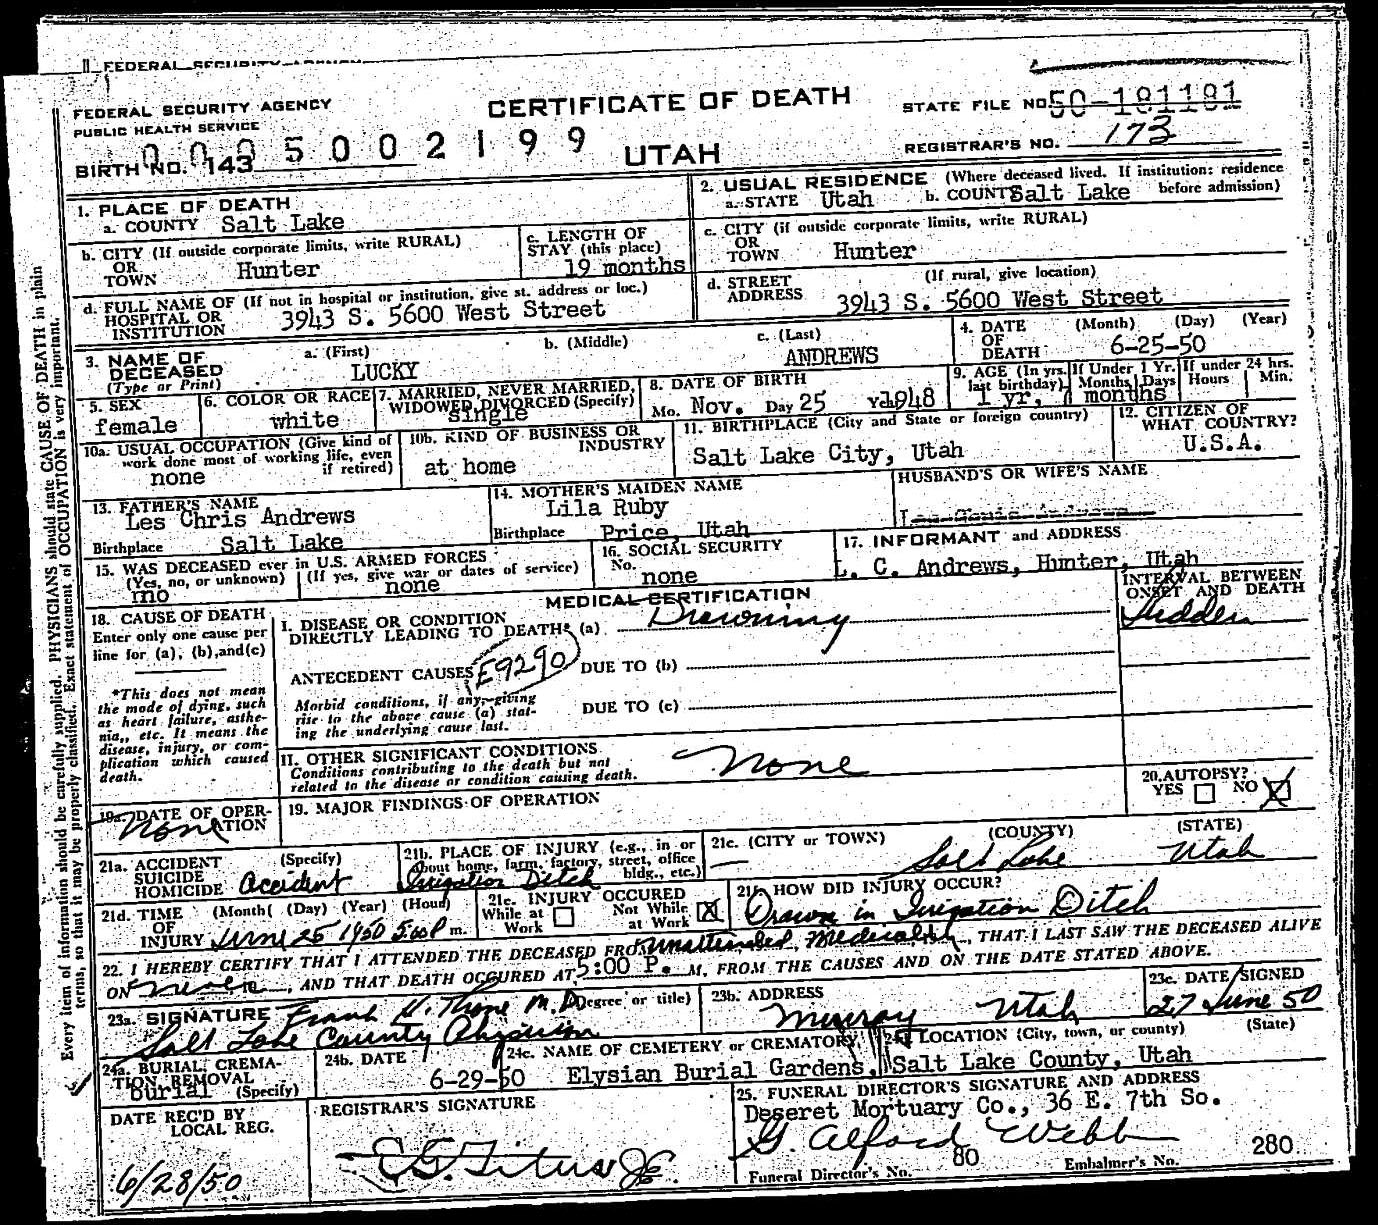 FEDERAL SECURITY AGENCY
FEDERAL SECURITY AGENCY
PUBLIC HEALTH SERVICE
CERTIFICATE OF DEATH
STATE FILE NO. 50-181181
BIRTH NO. 143
0005002199
UTAH
REGISTRAR'S NO. 173
1. PLACE OF DEATH
a. COUNTY Salt Lake
2. USUAL RESIDENCE (Where deceased lived. If institution: residence before admission)
a. STATE Utah b. COUNTY Salt Lake
b. CITY (If outside corporate limits, write RURAL)
OR
TOWN Hunter
c. LENGTH OF
STAY (this place)
19 months
c. CITY (if outside corporate limits, write RURAL)
OR
TOWN Hunter
d. FULL NAME OF (If not in hospital or institution, give st. address or loc.)
HOSPITAL OR
INSTITUTION 3943 S. 5600 West Street
d. STREET (If rural, give location)
ADDRESS 3943 S. 5600 West Street
3. NAME OF
DECEASED
(Type or Print)
a. (First) LUCKY
b. (Middle)
c. (Last) ANDREWS
4. DATE (Month) (Day) (Year)
OF
DEATH 6-25-50
5. SEX
female
6. COLOR OR RACE
white
7. MARRIED, NEVER MARRIED,
WIDOWED, DIVORCED (Specify)
single
8. DATE OF BIRTH
Mo. Nov. Day 25 Yr. 1948
9. AGE (In yrs. last birthday)
If Under 1 Yr. Months Days
If under 24 hrs. Hours Min.
1 yr, 7 months
10a. USUAL OCCUPATION (Give kind of
work done most of working life, even
if retired)
none
10b. KIND OF BUSINESS OR
INDUSTRY
at home
11. BIRTHPLACE (City and State or foreign country)
Salt Lake City, Utah
12. CITIZEN OF
WHAT COUNTRY?
U.S.A.
13. FATHER'S NAME
Les Chris Andrews
Birthplace Salt Lake
14. MOTHER'S MAIDEN NAME
Lila Ruby
Birthplace Price, Utah
HUSBAND'S OR WIFE'S NAME
15. WAS DECEASED ever in U.S. ARMED FORCES
(Yes, no, or unknown) (If yes, give war or dates of service)
no none
16. SOCIAL SECURITY
No. none
17. INFORMANT and ADDRESS
L. C. Andrews, Hunter, Utah
MEDICAL CERTIFICATION
INTERVAL BETWEEN
ONSET AND DEATH
18. CAUSE OF DEATH
Enter only one cause per
line for (a), (b), and (c)
*This does not mean
the mode of dying, such
as heart failure, asthe-
nia,, etc. It means the
disease, injury, or com-
plication which caused
death.
I. DISEASE OR CONDITION
DIRECTLY LEADING TO DEATH* (a) Drowning
Sudden
ANTECEDENT CAUSES E9290 DUE TO (b)
Morbid conditions, if any, giving
rise to the above cause (a) stat-
ing the underlying cause last.
DUE TO (c)
II. OTHER SIGNIFICANT CONDITIONS
Conditions contributing to the death but not
related to the disease or condition causing death.
None
20. AUTOPSY?
YES NO X
19a. DATE OF OPER-
ATION None
19. MAJOR FINDINGS OF OPERATION
21a. ACCIDENT (Specify)
SUICIDE
HOMICIDE Accident
21b. PLACE OF INJURY (e.g., in or
about home, farm, factory, street, office
bldg., etc.)
Irrigation Ditch
21c. (CITY or TOWN) (COUNTY) (STATE)
— Salt Lake Utah
21d. TIME (Month( (Day) (Year) (Hour)
OF
INJURY June 25 1950 5:00 P m.
21e. INJURY OCCURED
While at Work
Not While at Work X
21f. HOW DID INJURY OCCUR?
Drown in Irrigation Ditch
22. I HEREBY CERTIFY THAT I ATTENDED THE DECEASED FROM Unattended Medically, THAT I LAST SAW THE DECEASED ALIVE
ON , AND THAT DEATH OCCURED AT 5:00 P. M, FROM THE CAUSES AND ON THE DATE STATED ABOVE.
23a. SIGNATURE (Degree or title)
Frank H. M.D.
Salt Lake County Physician
23b. ADDRESS
Murray Utah
23c. DATE SIGNED
27 June 50
24a. BURIAL, CREMA-
TION, REMOVAL
(Specify)
burial
24b. DATE
6-29-50
24c. NAME OF CEMETERY or CREMATORY
Elysian Burial Gardens,
24d. LOCATION (City, town, or county) (State)
Salt Lake County, Utah
DATE REC'D BY
LOCAL REG.
6/28/50
REGISTRAR'S SIGNATURE
25. FUNERAL DIRECTOR'S SIGNATURE AND ADDRESS
Deseret Mortuary Co., 36 E. 7th So.
G. Alford Webb
Funeral Director's No. 80 Embalmer's No. 280
Every item of information should be carefully supplied. PHYSICIANS should state CAUSE OF DEATH in plain
terms, so that it may be properly classified. Exact statement of OCCUPATION is very important.